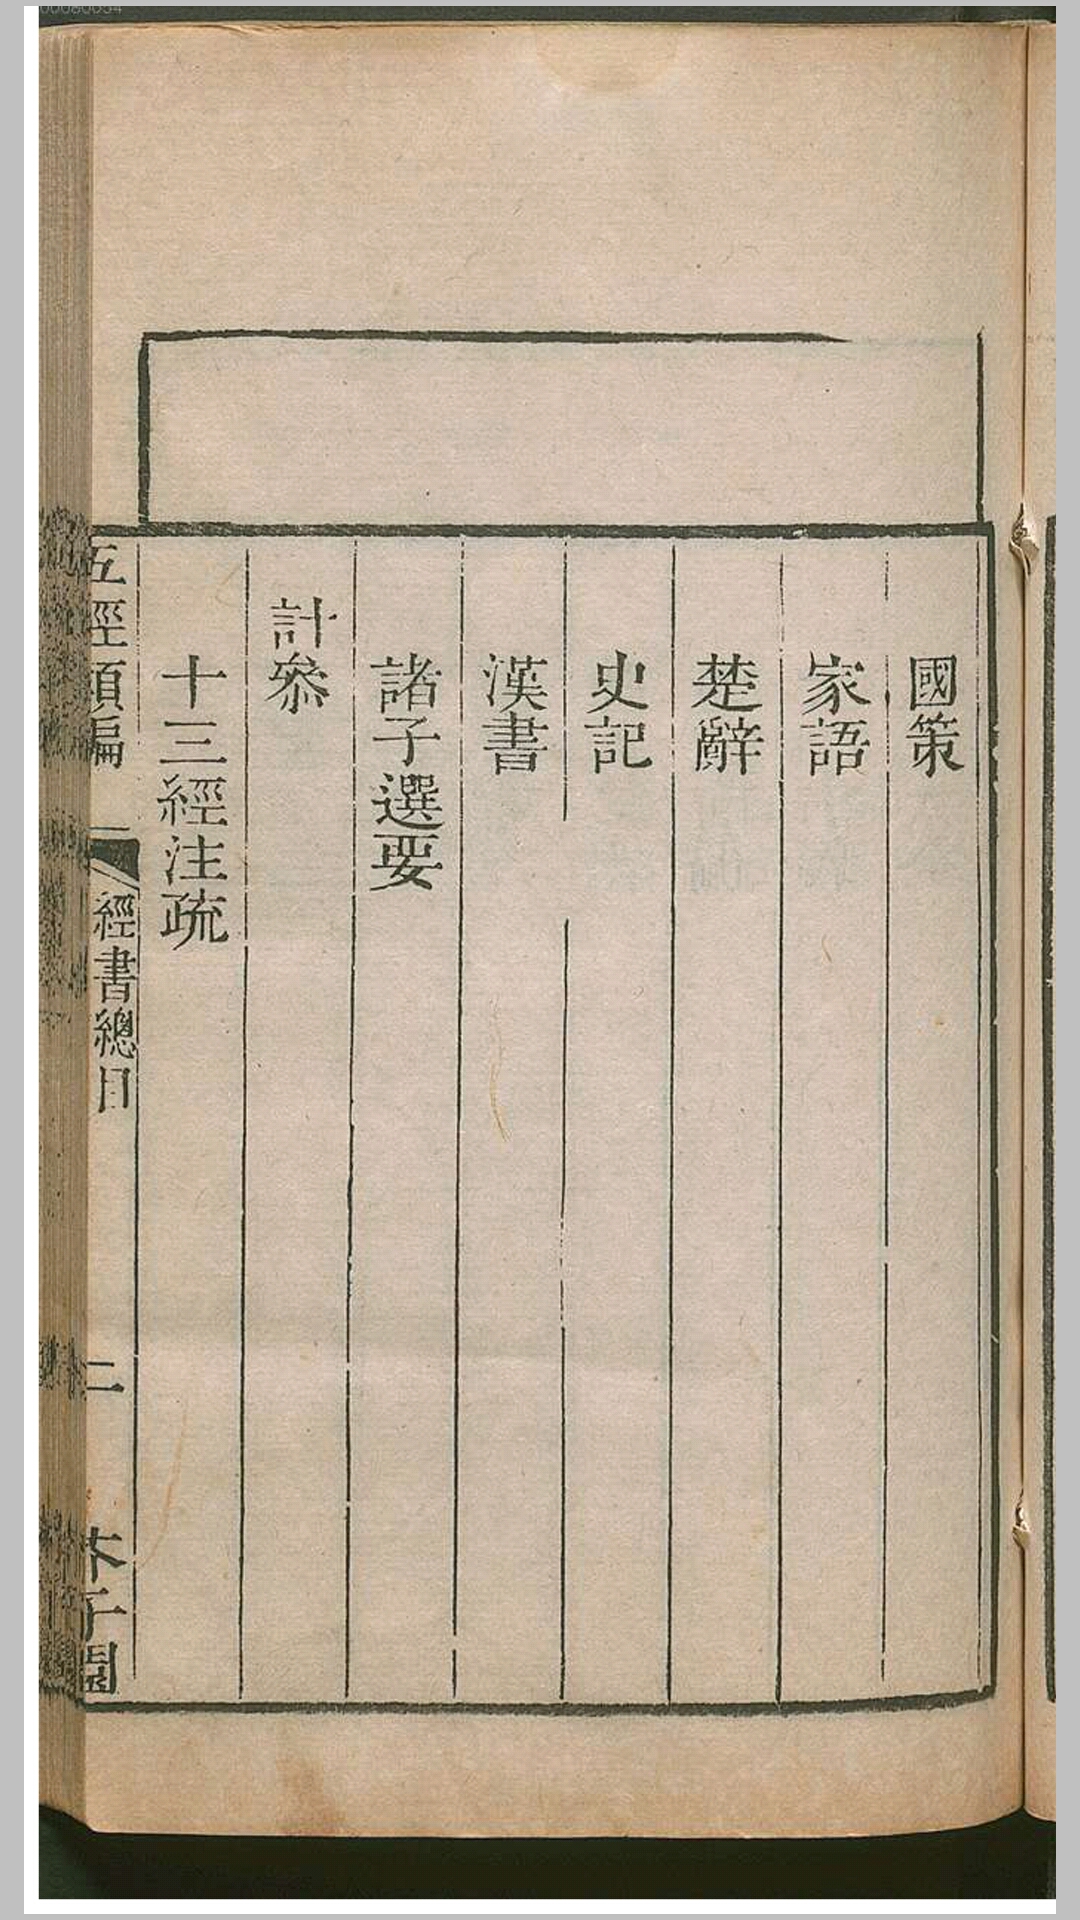 國策
家語
楚辭
史記
漢書
諸子選要
計叅
十三經注疏
五經類編
經書總目
二
芥子園